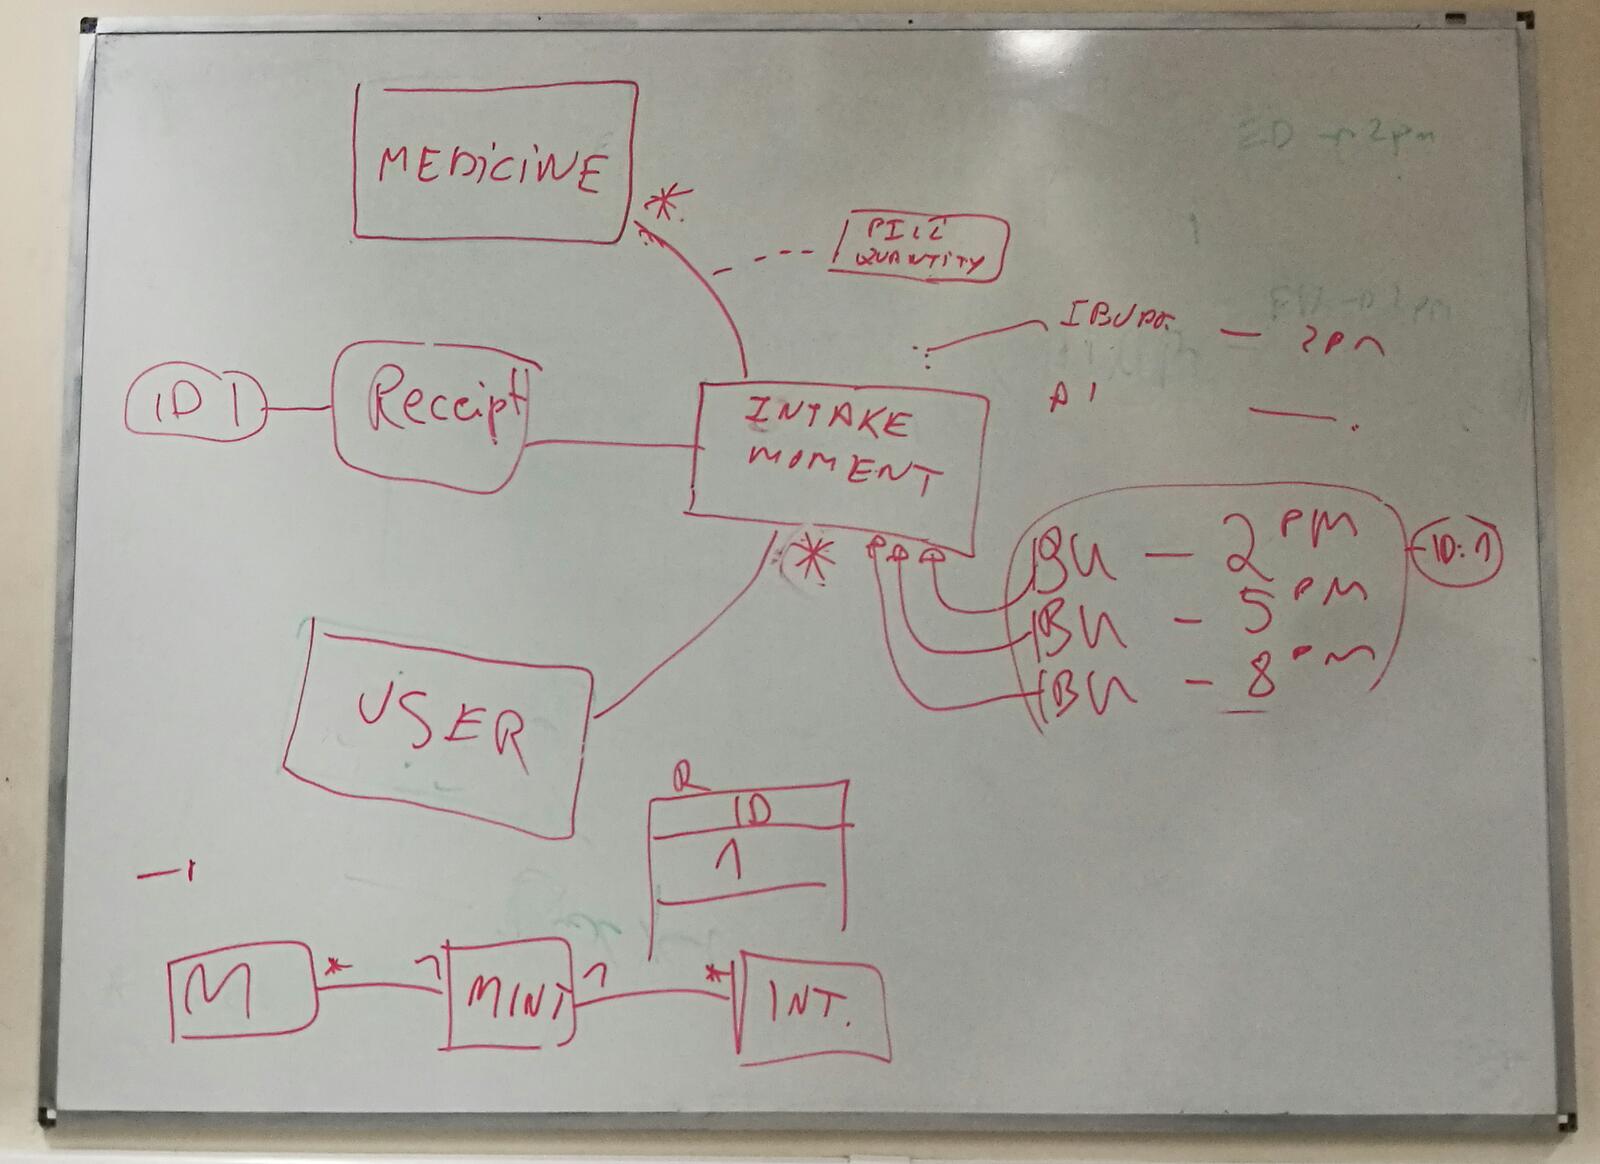 MEDICINE
*
PILL
QUANTITY
ED → 2pm
IBUPR. — 2PM
ID 1
Receipt
INTAKE
MOMENT
A1
*
IBU — 2 PM
IBU - 5 PM
IBU - 8 PM
ID:1
USER
R
ID
1
M
*
1
MINT
1
*
INT.